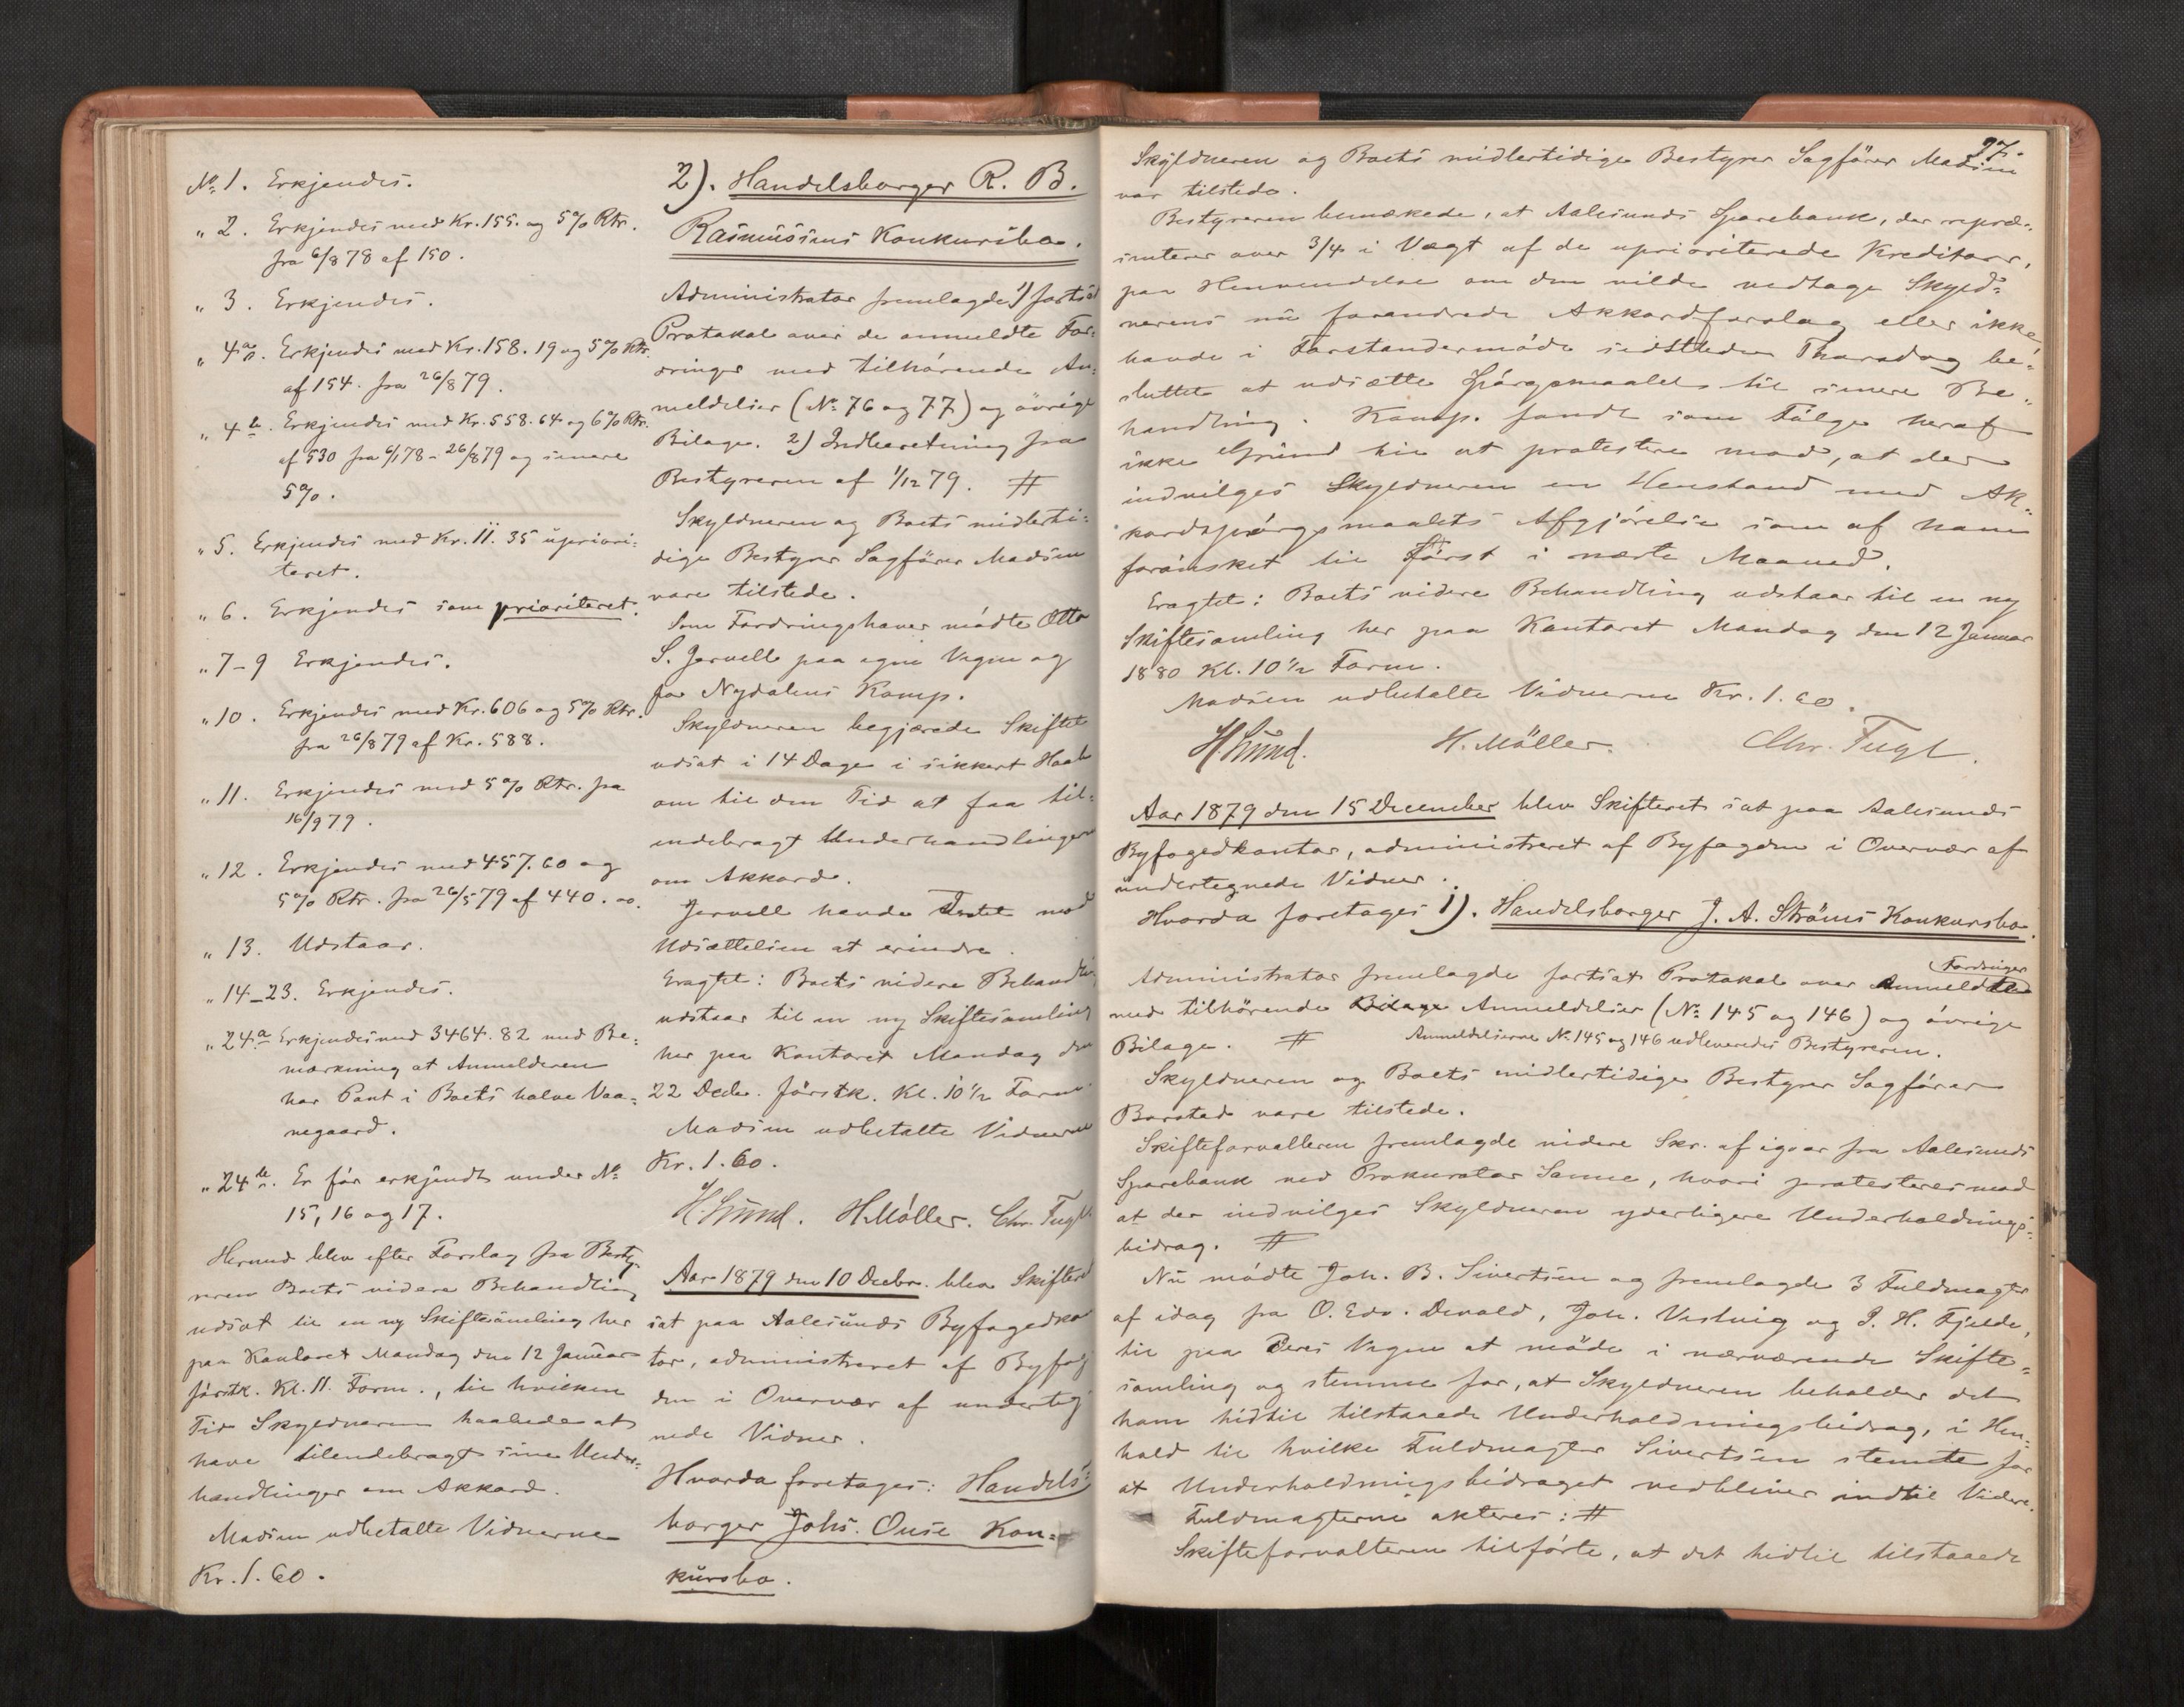 No 1. Erkjendes.
" 2. Erkjendes med Kr. 155. og 5% Rtr.
fra 6/8 78 af 150.
" 3. Erkjendes.
" 4a. Erkjendes med Kr. 158.19 og 5% Rtr.
af 154. fra 26/8 79.
" 4b. Erkjendes med Kr. 558.64 og 6% Rtr.
af 530 fra 6/1 78 - 26/8 79 og senere
5%.
" 5. Erkjendes med Kr. 11.35 upriori-
teret.
" 6. Erkjendes som prioriteret.
" 7-9 Erkjendes.
" 10. Erkjendes med Kr. 606 og 5% Rtr.
fra 26/8 79 af Kr. 588.
" 11. Erkjendes med 5% Rtr. fra
16/9 79.
" 12. Erkjendes med 457.60 og
5% Rtr. fra 26/5 79 af 440.00.
" 13. Udstaar.
" 14-23. Erkjendes.
" 24a Erkjendes med 3464.82 med Be-
mærkning at Anmelderen
har Pant i Boets halve Vaa-
negaard.
" 24b. Er før erkjendt under No
15, 16 og 17.
Hermed blev efter Forslag fra Besty-
reren Boets videre Behandling
udsat til en ny Skiftesamling her
paa Kontoret Mandag den 12 Januar
førstk. Kl. 11. Form., til hvilken
Tid Skyldneren haabede at
have tilendebragt sine Under-
handlinger om Akkord.
Madsen udbetalte Vidnerne
Kr. 1.60.
2). Handelsborger R. B.
Rasmussens Konkursbo.
Administrator fremlagde 1) fortsat
Protokol over de anmeldte For-
dringer med tilhørende An-
meldelser (No 76 og 77) og øvrige
Bilage. 2) Indberetning fra
Bestyreren af 1/12 79. #
Skyldneren og Boets midlerti-
dige Bestyrer Sagfører Madsen
vare tilstede.
Som Fordringshaver mødte Otto
S. Jervell paa egne Vegne og
for Nydalens Komp.
Skyldneren begjærede Skiftet
udsat i 14 Dage i sikkert Haab
om til den Tid at faa til-
endebragt Underhandlingerne
om Akkord.
Jervell havde Intet mod
Udsættelsen at erindre.
Eragtet: Boets videre Behandling
udstaar til en ny Skiftesamling
her paa Kontoret Mandag den
22 Decbr. førstk. Kl. 10 1/2 Form.
Madsen udbetalte Vidnerne
Kr. 1.60.
H. Smed. H. Møller. Chr. Fugl.
Aar 1879 den 10 Decbr. blev Skifteret
sat paa Aalesunds Byfogedkon-
tor, administreret af Byfog-
den i Overvær af underteg-
nede Vidner.
Hvorda foretages: Handels-
borger Johs. Ouse Kon-
kursbo.
97.
Skyldneren og Boets midlertidige Bestyrer Sagfører Madsen
var tilstede.
Bestyreren bemærkede, at Aalesunds Sparebank, der repræ-
senterer over 3/4 i Vægt af de uprioriterede Kreditorer,
paa Henvendelse om den vilde vedtage Skyld-
nerens nu forandrede Akkordforslag eller ikke
havde i Forstandermøde sidstleden Thorsdag be-
sluttet at udsætte Spørgsmaalet til senere Be-
handling. Komp. fandt som Følge heraf
ikke Grund til at protestere mod, at der
indvilges Skyldneren en Henstand med Ak-
kordspørgsmaalets Afgjørelse som af ham
forønsket til Først i næste Maaned.
Eragtet: Boets videre Behandling udstaar til en ny
Skiftesamling her paa Kontoret Mandag den 12 Januar
1880 Kl. 10 1/2 Form.
Madsen udbetalte Vidnerne Kr. 1.60.
H. Smed. H. Møller. Chr. Fugl.
Aar 1879 den 15 December blev Skifteret sat paa Aalesunds
Byfogedkontor, administreret af Byfogden i Overvær af
undertegnede Vidner.
Hvorda foretages 1). Handelsborger J. A. Strøms Konkursbo.
Administrator fremlagde fortsat Protokol over Anmeldte Fordringer
med tilhørende Bilage Anmeldelser (No 145 og 146) og øvrige
Bilage. # Anmeldelserne No 145 og 146 udleveredes Bestyreren.
Skyldneren og Boets midlertidige Bestyrer Sagfører
Borstad vare tilstede.
Skifteforvalteren fremlagde videre Skr. af igaar fra Aalesunds
Sparebank ved Prokurator Sanne, hvori protesteres mod
at der indvilges Skyldneren yderligere Underholdnings-
bidrag. #
Nu mødte Joh. B. Sivertsen og fremlagde 3 Fuldmagter
af idag fra O. Edv. Devold, Joh. Vestvig og J. H. Fjelde,
til paa Deres Vegne at møde i nærværende Skifte-
samling og stemme for, at Skyldneren beholder det
ham hidtil tilstaaede Underholdningsbidrag, i Hen-
hold til hvilke Fuldmagter Sivertsen stemte for
at Underholdningsbidraget vedbliver indtil Videre.
Fuldmagterne akteres: #
Skifteforvalteren tilførte, at det hidtil tilstaaede